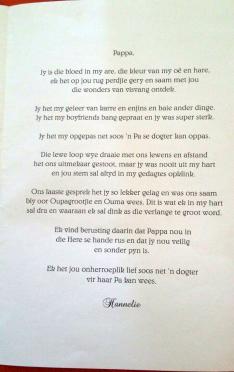 Pappa,
Jy is die bloed in my are, die kleur van my oë en hare,
ek het op jou rug perdjie gery en saam met jou
die wonders van visvang ontdek.
Jy het my geleer van karre en enjins en baie ander dinge.
Jy het my boyfriends bang gepraat en jy was super sterk.
Jy het my opgepas net soos 'n Pa se dogter kan oppas.
Die lewe loop wye draaie met ons lewens en afstand
het ons uitmekaar geskeur, maar jy was nooit uit my hart
en jou stem sal altyd in my gedagtes opklink.
Ons laaste gesprek het jy so lekker gelag en was ons saam
bly oor Oupagrootjie en Ouma wees. Dit is wat ek in my hart
sal dra en waaraan ek sal dink as die verlange te groot word.
Ek vind berusting daarin dat Pappa nou in
die Here se hande rus en dat jy nou veilig
en sonder pyn is.
Ek het jou onherroeplik lief soos net 'n dogter
vir haar Pa kan wees.
Hannelie